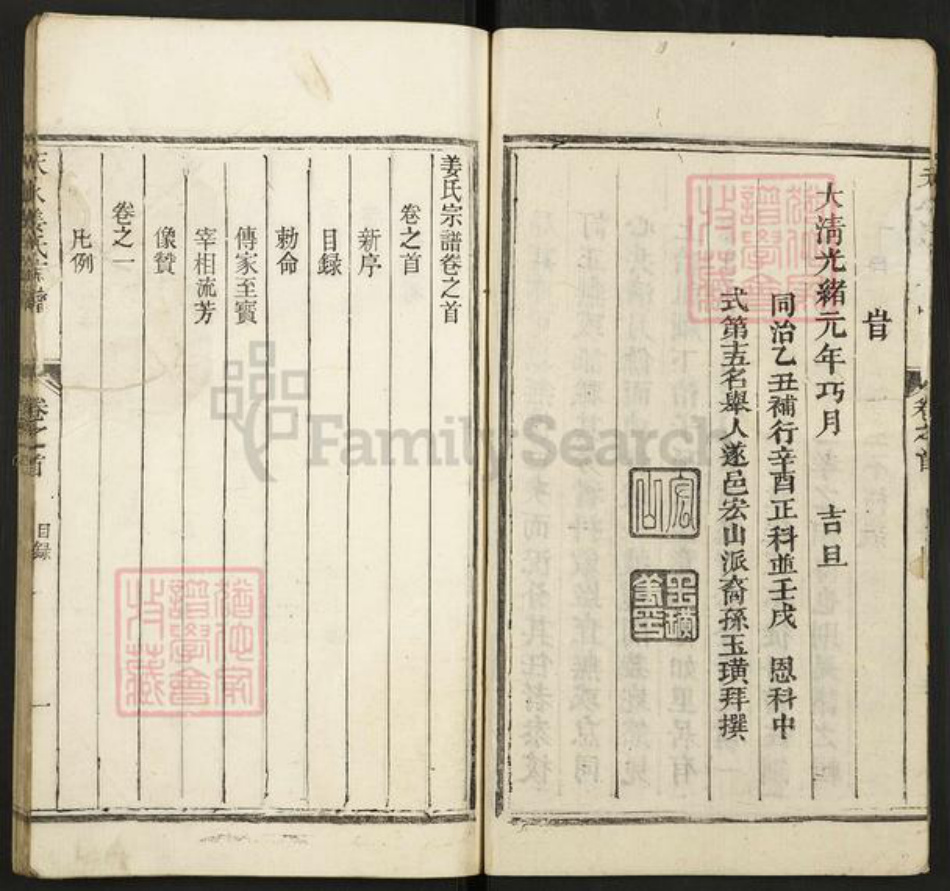 旹
大淸光緒元年巧月 吉旦
同治乙丑補行辛酉正科並壬戌 恩科中
式第十五名舉人遂邑宏山派裔孫玉璜拜撰
宏山
卷之首
姜氏宗譜卷之首
卷之首
新序
目録
勅命
傳家至寶
宰相流芳
像贊
卷之一
凡例
天水姜氏宗譜
卷之首
目録
一
FamilySearch